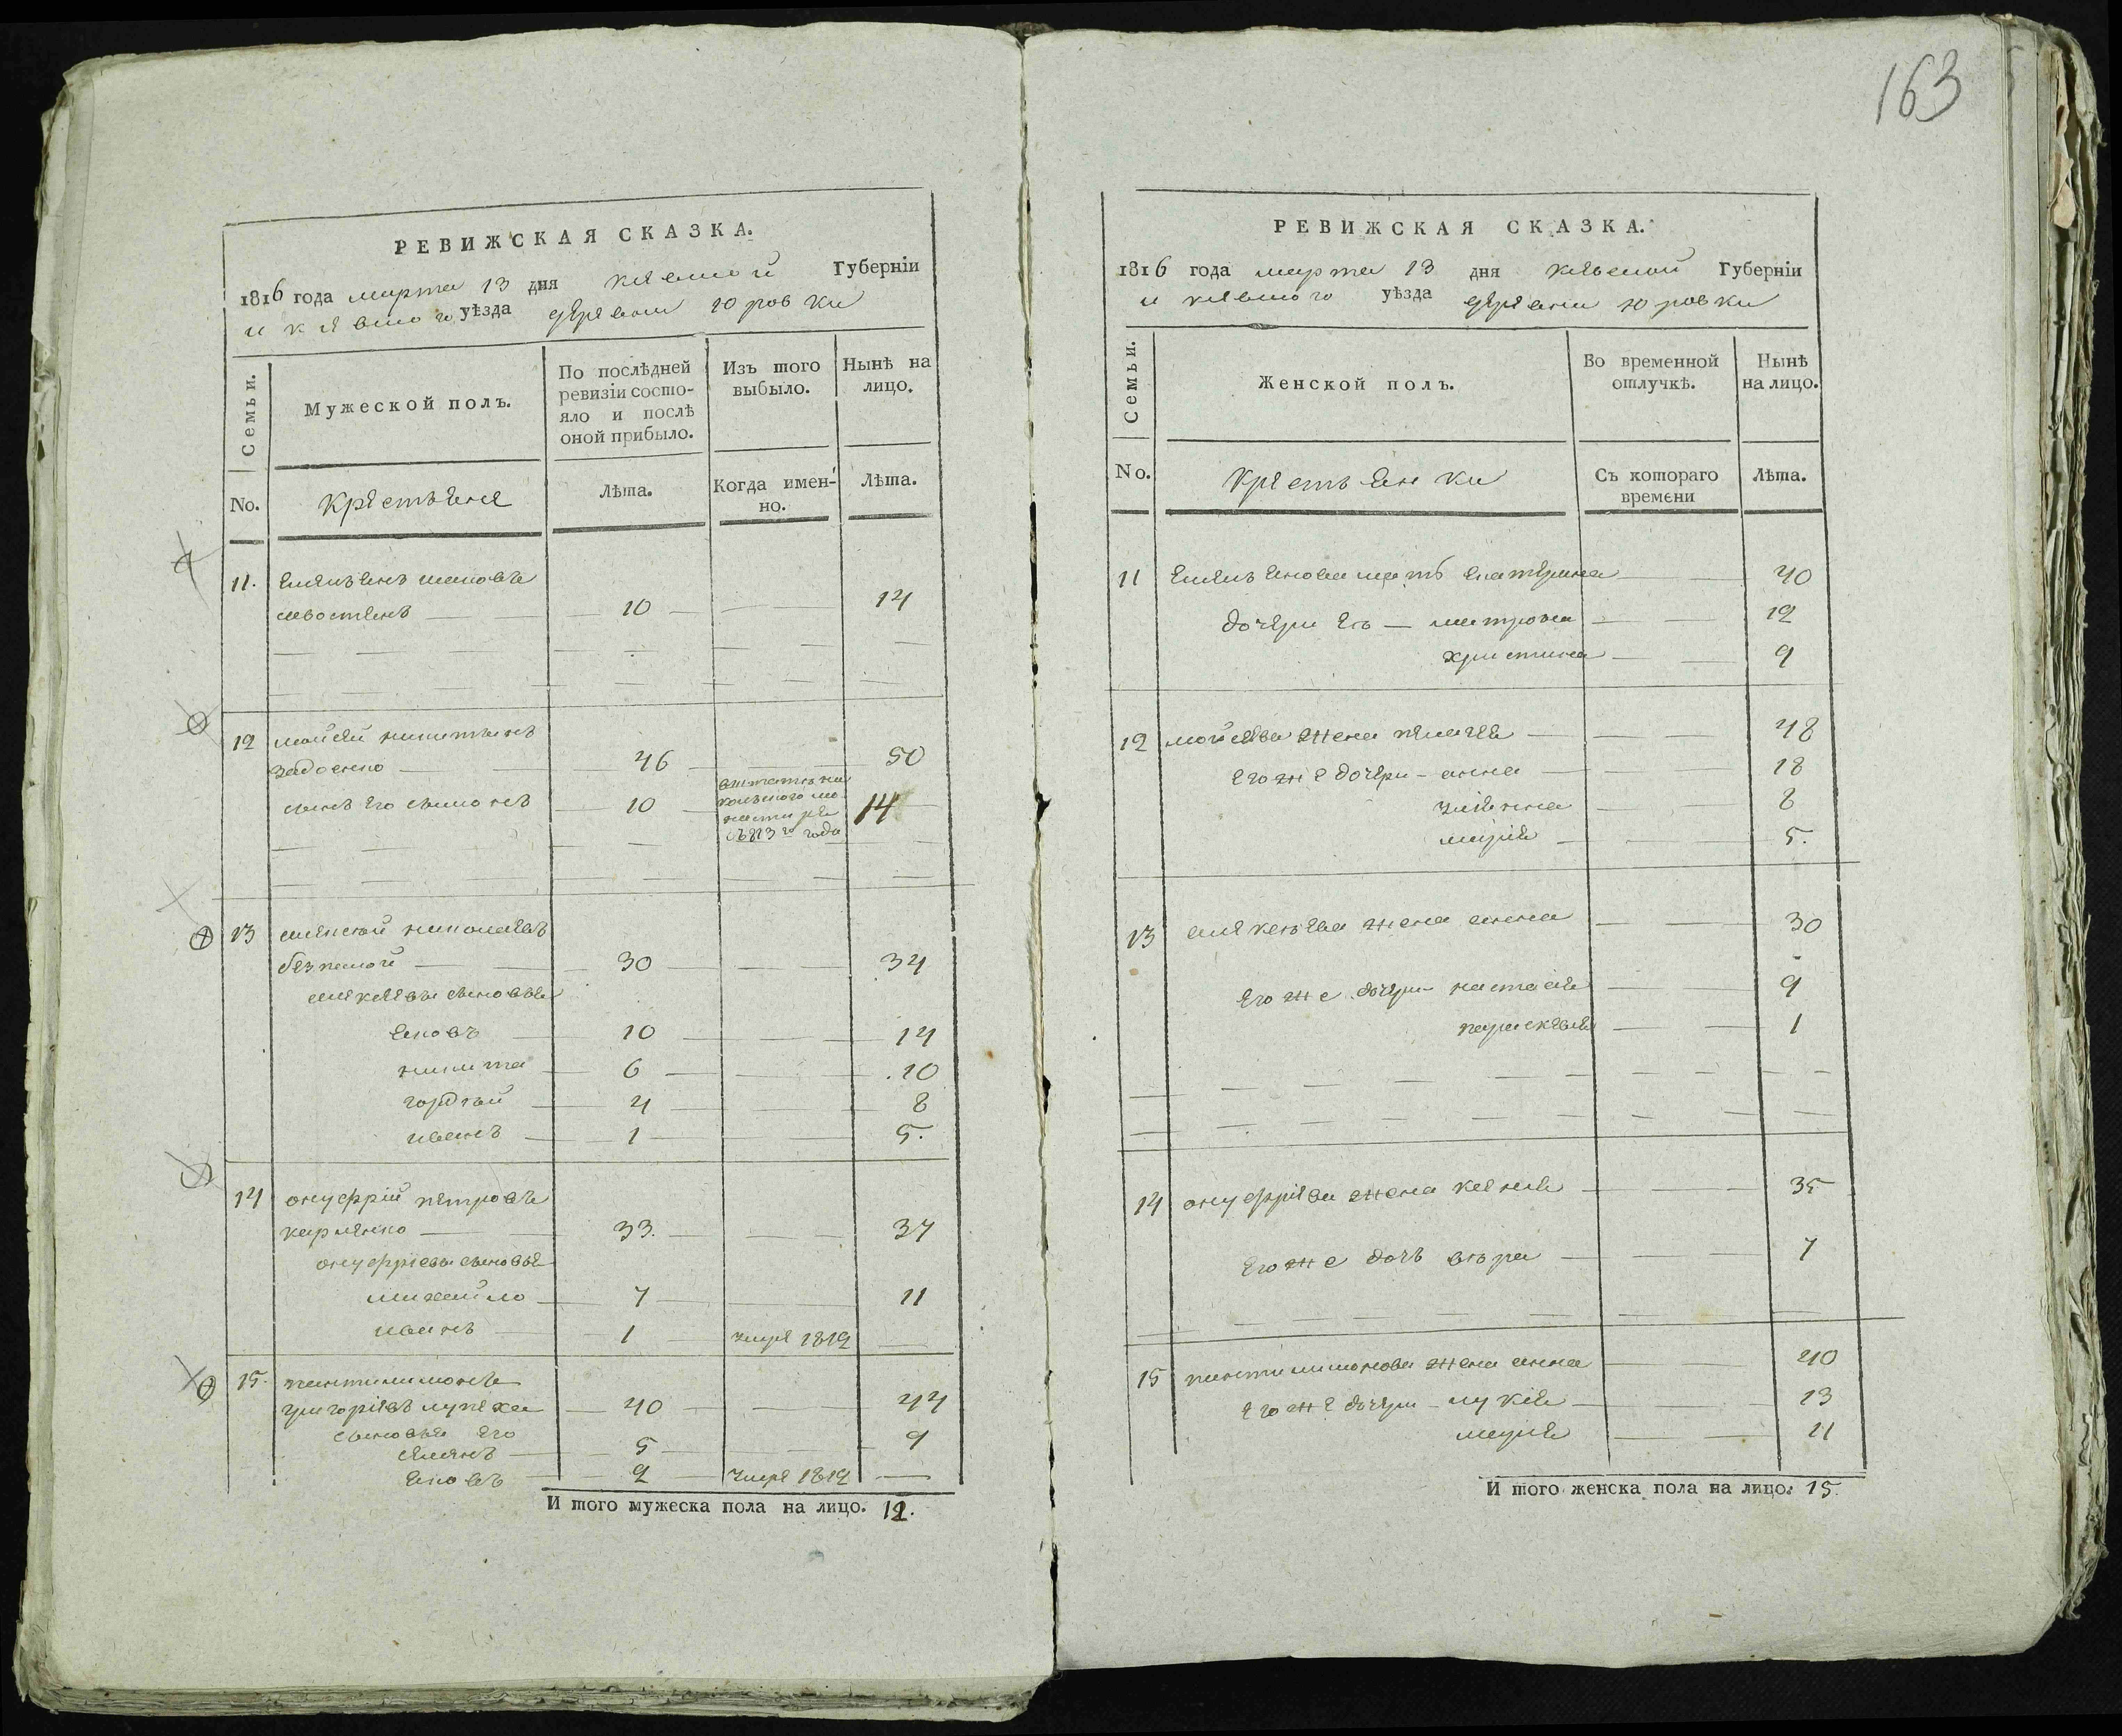 163
РЕВИЖСКАЯ СКАЗКА.
1816 года марта 13 дня киевской Губерніи
и киевского уѣзда деревни юровки
Семьи.
Мужеской полъ.
По послѣдней
ревизіи состо-
яло и послѣ
оной прибыло.
Изъ того
выбыло.
Нынѣ на
лицо.
No.
крестьяне
Лѣта.
Когда имен-
но.
Лѣта.
11. Емельянъ
10 14
12 мойсей никитинъ
46 50
сынъ его симонъ 10 14
813 го года
13 алексей николаевъ
30 34
алексеевы сыновья
яковъ 10 14
никита 6 10
гордей 4 8
иванъ 1 5.
14 онуфрій петровъ
карпенко 33. 37
онуфріевы сыновья
михайло 7 11
иванъ 1 умре 1812
15. пантилимонъ
григоріевъ лупеха 40 44
сыновья его
семенъ 5 9
яковъ 2 умре 1812
И того мужеска пола на лицо. 12.
РЕВИЖСКАЯ СКАЗКА.
1816 года марта 13 дня киевской Губерніи
и киевского уѣзда деревни юровки
Семьи.
Женской полъ.
Во временной
отлучкѣ.
Нынѣ
на лицо.
No.
крестьянки
Съ котораго
времени
Лѣта.
11 Емельянова мать катерина 40
дочери его матрона 12
христина 9
12 мойсеева жена пелагея 48
его же дочери - анна 18
улянна 8
марія 5.
13 алексеева жена анна 30
его же дочери настасія 9
параскевія 1
14 онуфріева жена ксенія 35
его же дочь вера 7
15 пантилимонова жена анна 40
его же дочери - лукія 13
марія 11
И того женска пола на лицо. 15.